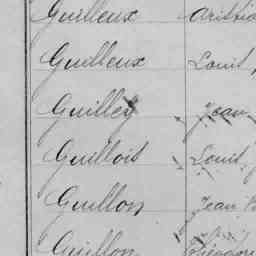 Guilleux Aristid
Guilleux Louis
Guilley Jean
Guillois Louis
Guillon Jean
Guillon